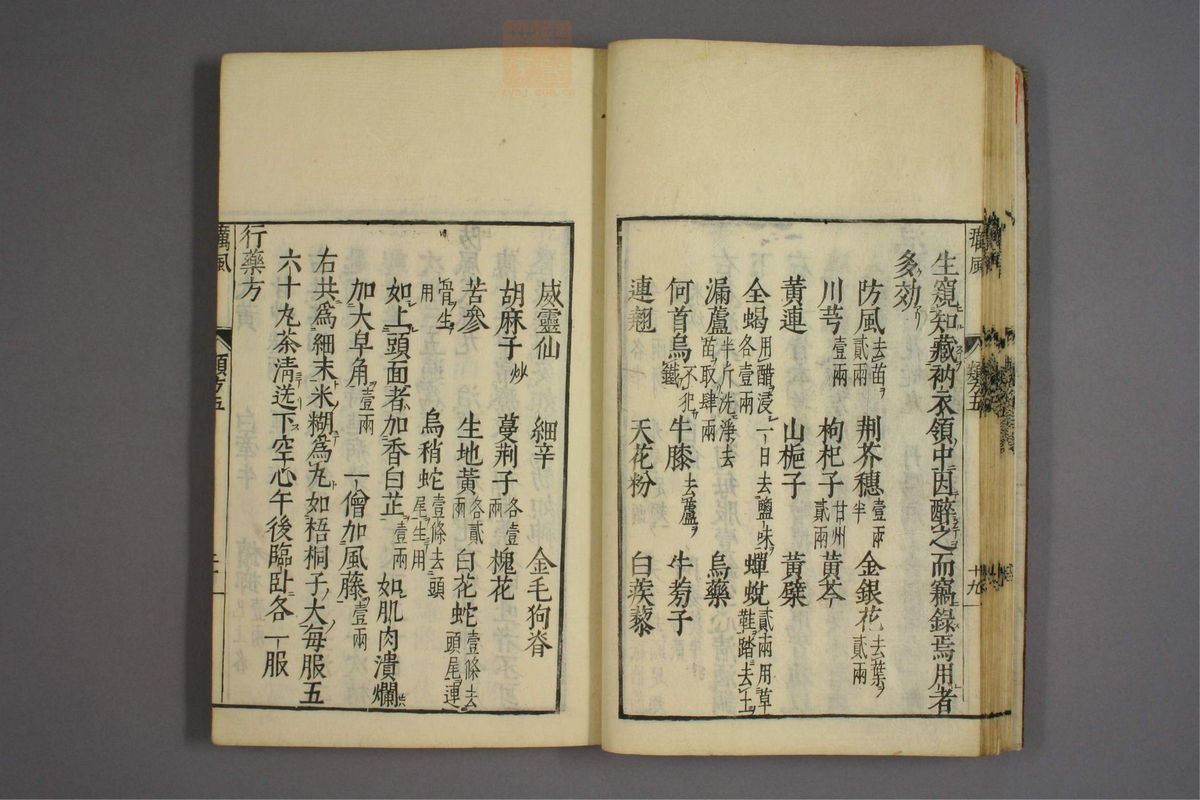 生窺知藏衲衣領中因醉之而竊錄焉用者
多効
防風去苗貳兩 荆芥穗壹兩半 金銀花去葉貳兩
川芎壹兩 枸杞子甘州貳兩 黃芩
黃連 山梔子 黃檗
全蝎用醋浸一日去鹽味各壹兩 蟬蛻貳兩用草鞋踏去土
漏蘆半斤洗淨去苗取肆兩 烏藥
何首烏不犯鐵 牛膝去蘆 牛蒡子
連翹 天花粉 白蒺藜
癘風
類方五
十九
威靈仙 細辛 金毛狗脊
胡麻子炒 蔓荆子各壹兩 槐花
苦參 生地黃各貳兩 白花蛇壹條去頭尾連
骨生用 烏稍蛇壹條去頭尾生用
如上頭面者加香白芷壹兩 如肌肉潰爛
加大皁角壹兩 一僧加風藤壹兩
右共爲細末米糊爲丸如梧桐子大每服五
六十丸茶清送下空心午後臨臥各一服
行藥方
癘風
類方五